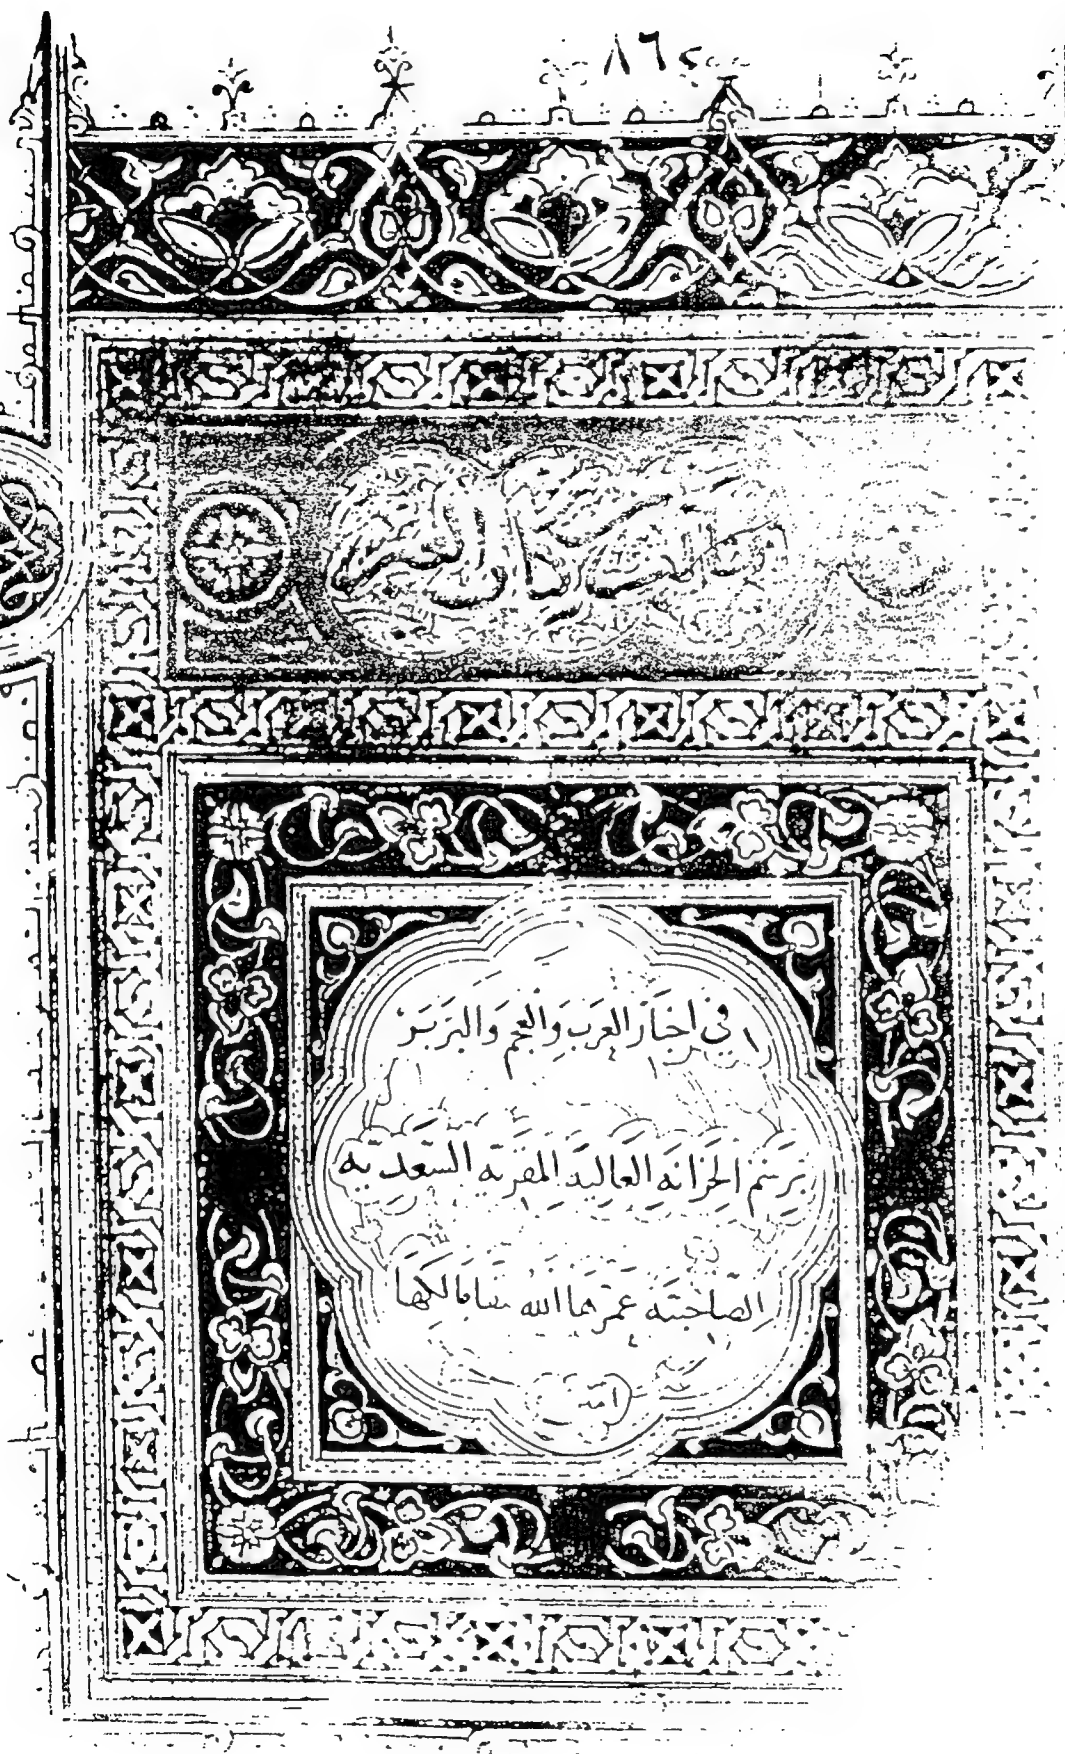 ٨٦٢
في اخبار العرب والعجم والبربر
برسم الخزانه العاليه المقريه السعديه
الصاحبيه عمرها الله ببقا مالكها
امين